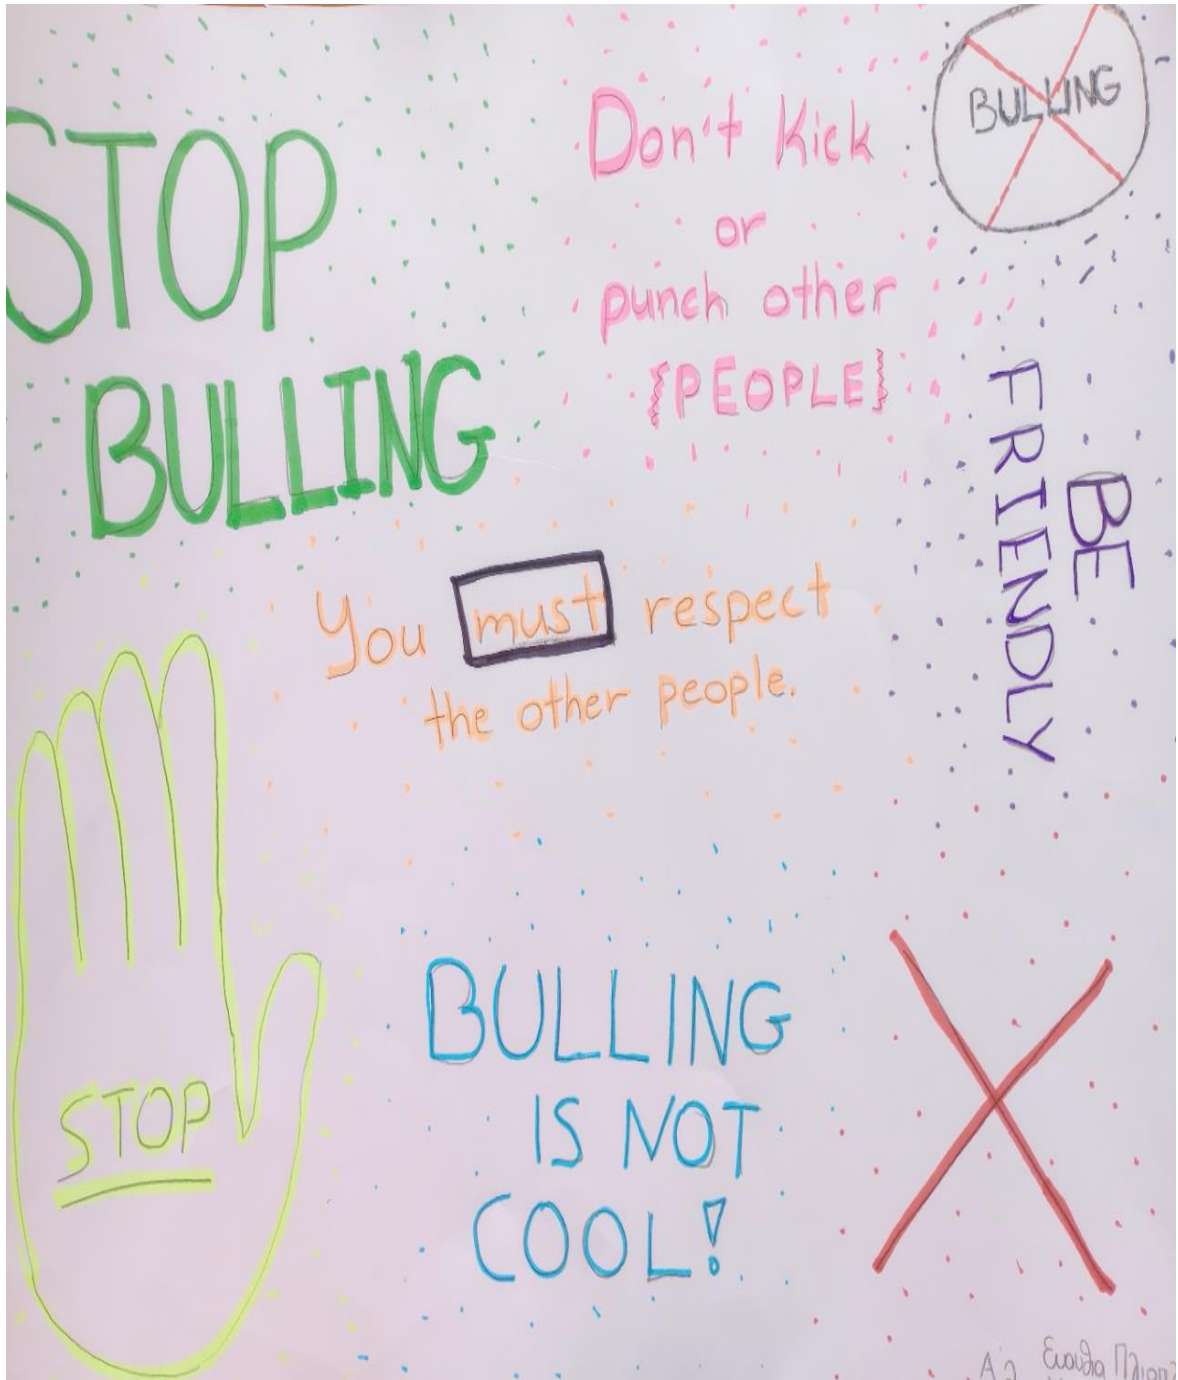 STOP
BULLING
Don't Kick
or
punch other
{PEOPLE}
BULLING
BE
FRIENDLY
You must respect
the other people.
STOP
BULLING
IS NOT
COOL!